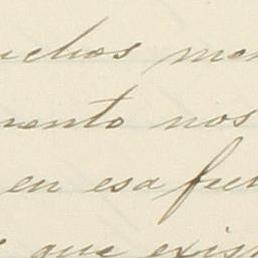 uchos mom
mento nos
en esa fue
que exis